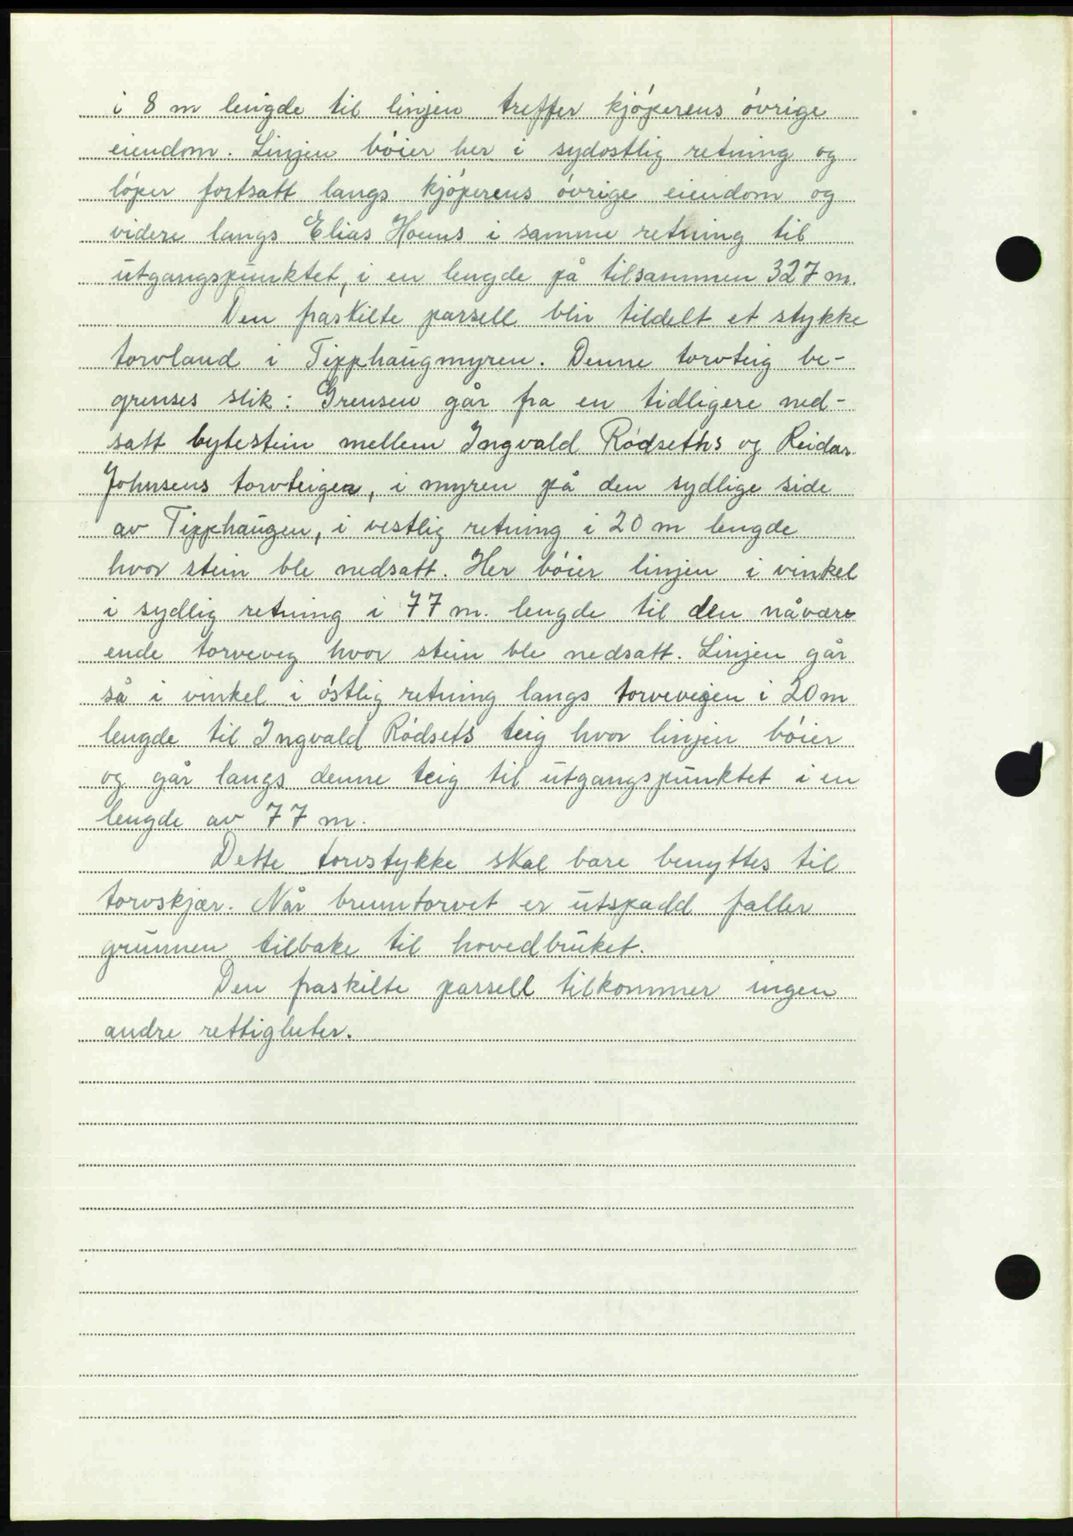 i 8 m lengde til linjen treffer kjøperens øvrige
eiendom. Linjen bøier her i sydostlig retning og
løper fortsatt langs kjøperens øvrige eiendom og
videre langs Elias Hoems i samme retning til
utgangspunktet, i en lengde på tilsammen 327 m.
Den fraskilte parsell blir tildelt et stykke
torvland i Tipphaugmyren. Denne torvteig be-
grenses slik: Grensen går fra en tidligere ned-
satt bytestein mellem Ingvald Rødseths og Reidar
Johnsens torvteiger, i myren på den sydlige side
av Tipphaugen, i vestlig retning i 20 m lengde
hvor stein ble nedsatt. Her bøier linjen i vinkel
i sydlig retning i 77 m. lengde til den nåvær
ende torveveg hvor stein ble nedsatt. Linjen går
så i vinkel i østlig retning langs torveveien i 20 m
lengde til Ingvald Rødsets teig hvor linjen bøier
og går langs denne teig til utgangspunktet i en
lengde av 77 m.
Dette torvstykke skal bare benyttes til
torvskjær. Når brenntorvet er utspadd faller
grunnen tilbake til hovedbruket.
Den fraskilte parsell tilkommer ingen
andre rettigheter.